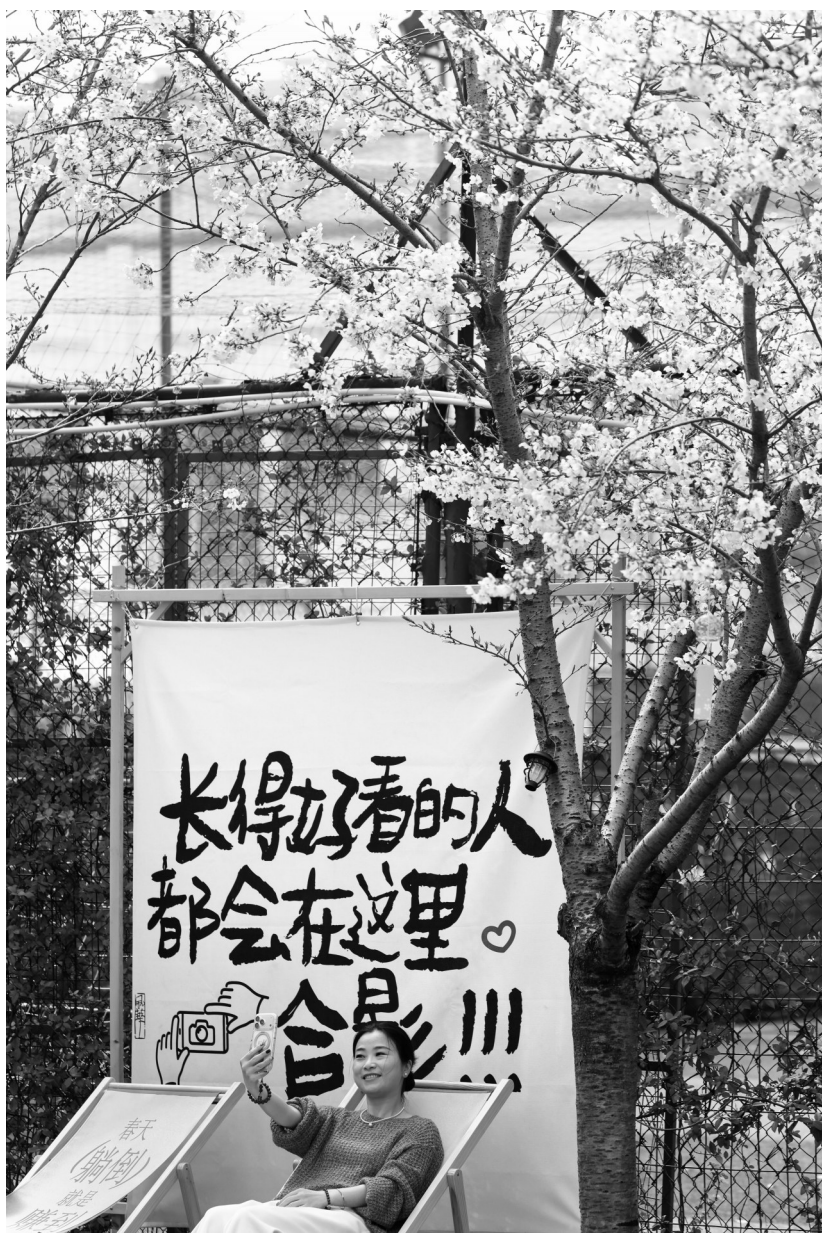 长得好看的人
都会在这里
合影!!!
春天
(躺倒)
就是
赚到